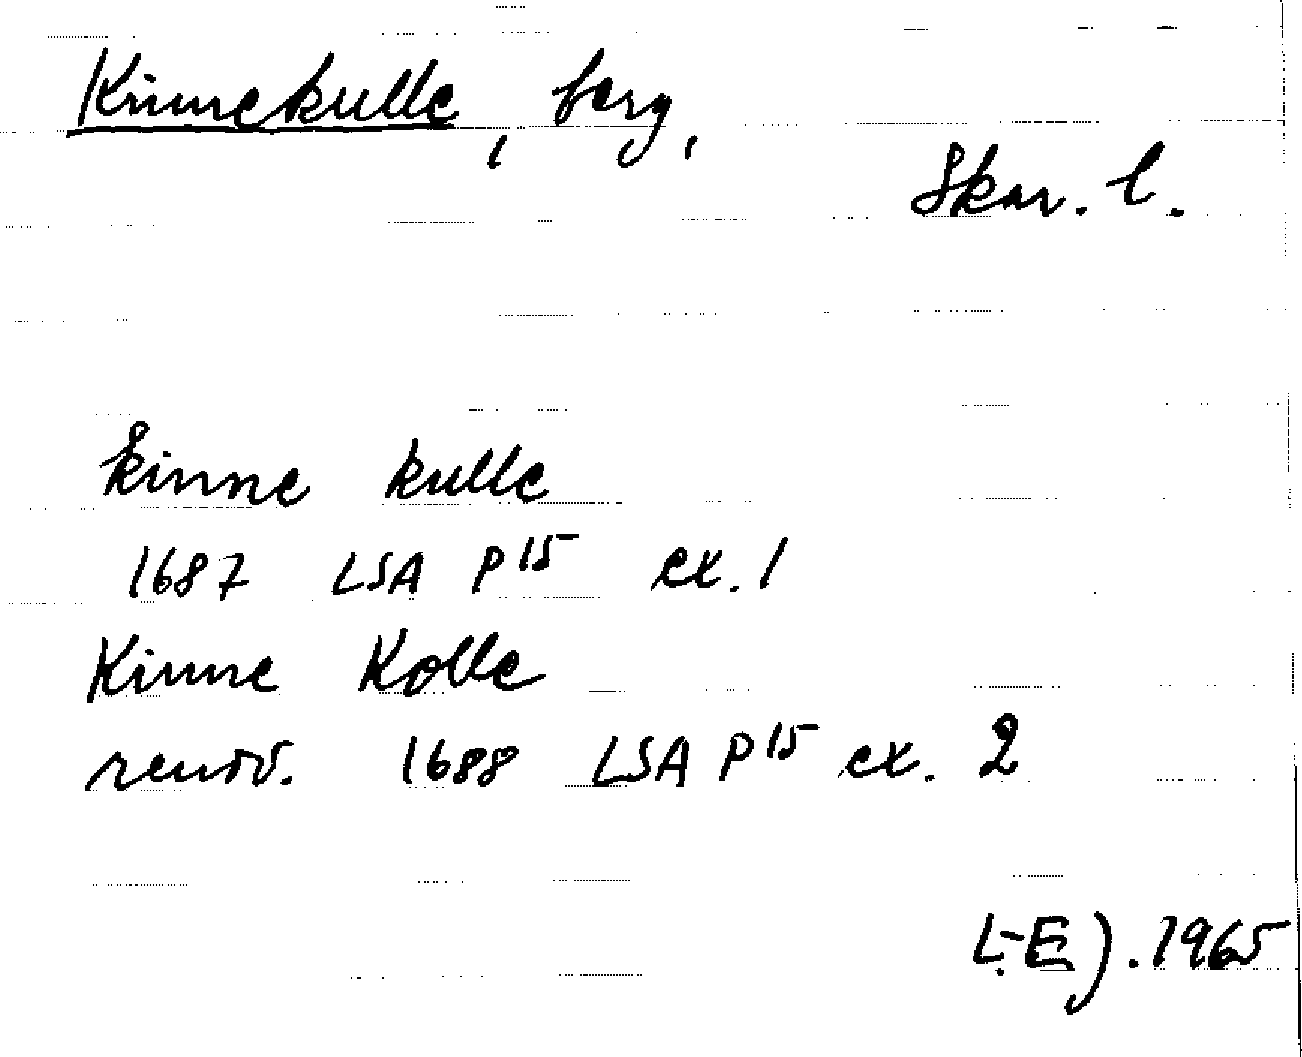 Kinnekulle, berg,
Skar. l.
kinne kulle
1687 LSA P15 ex. 1
Kinne Kolle
renov. 1688 LSA P15 ex. 2
L-E J. 1965